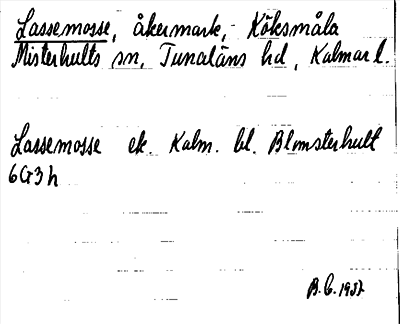 Lassemosse, åkermark, Köksmåla
Misterhults sn, Tunaläns hd, Kalmar l.
Lassemosse ek. Kalm. bl. Blomsterhult
6G3h
B.C. 1937